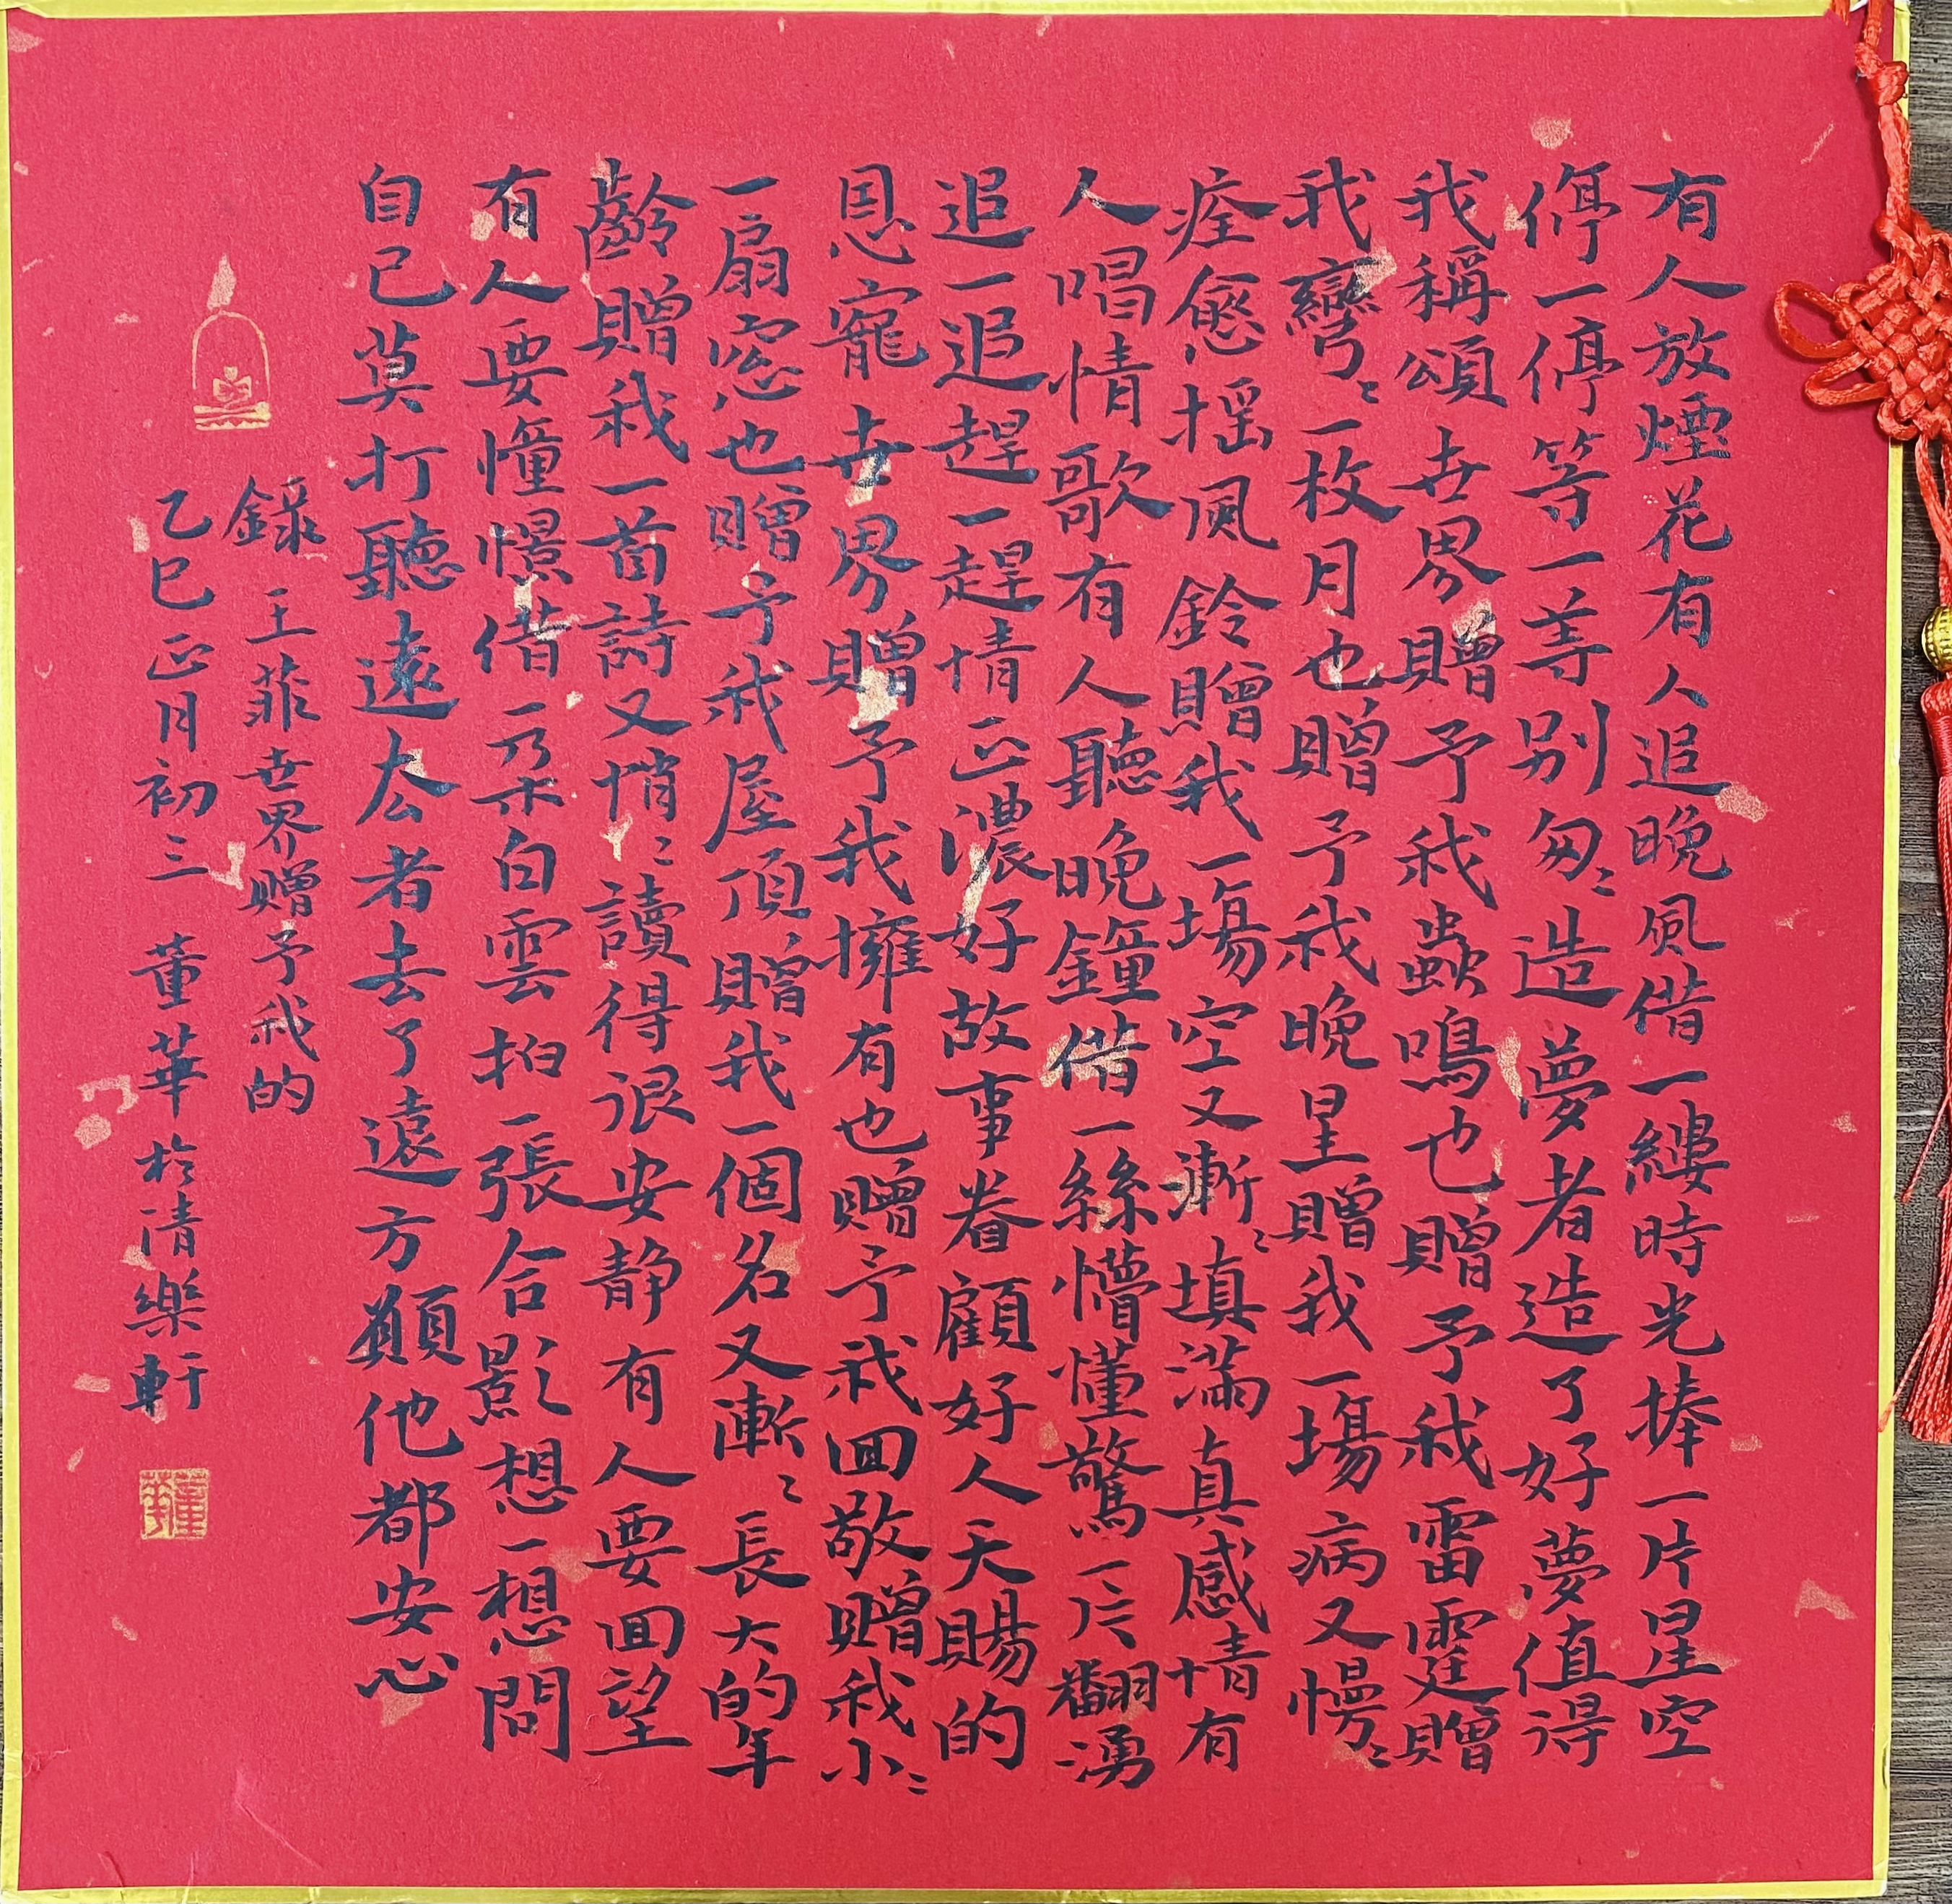 有人放煙花有人追晚風借一縷時光捧一片星空
停一停等一等别匆〻造夢者造了好夢值得
我稱頌世界贈予我蟲鳴也贈予我雷霆贈
我彎〻一枚月也贈予我晚星贈我一場病又慢〻
痊愈摇風鈴贈我一場空又漸〻填滿真感情有
人唱情歌有人聽晚鐘借一絲懵懂驚一片翻湧
追一追趕一趕情正濃好故事眷顧好人天賜的
恩寵世界贈予我擁有也贈予我回敬贈我小〻
一扇窓也贈予我屋頂贈我一個名又漸〻長大的年
齡贈我一首詩又悄〻讀得很安静有人要回望
有人要憧憬借一朵白雲拍一張合影想一想問
自己莫打聽遠厺者去了遠方願他都安心
錄王菲世界贈予我的
乙巳正月初三董華於清樂軒
董華